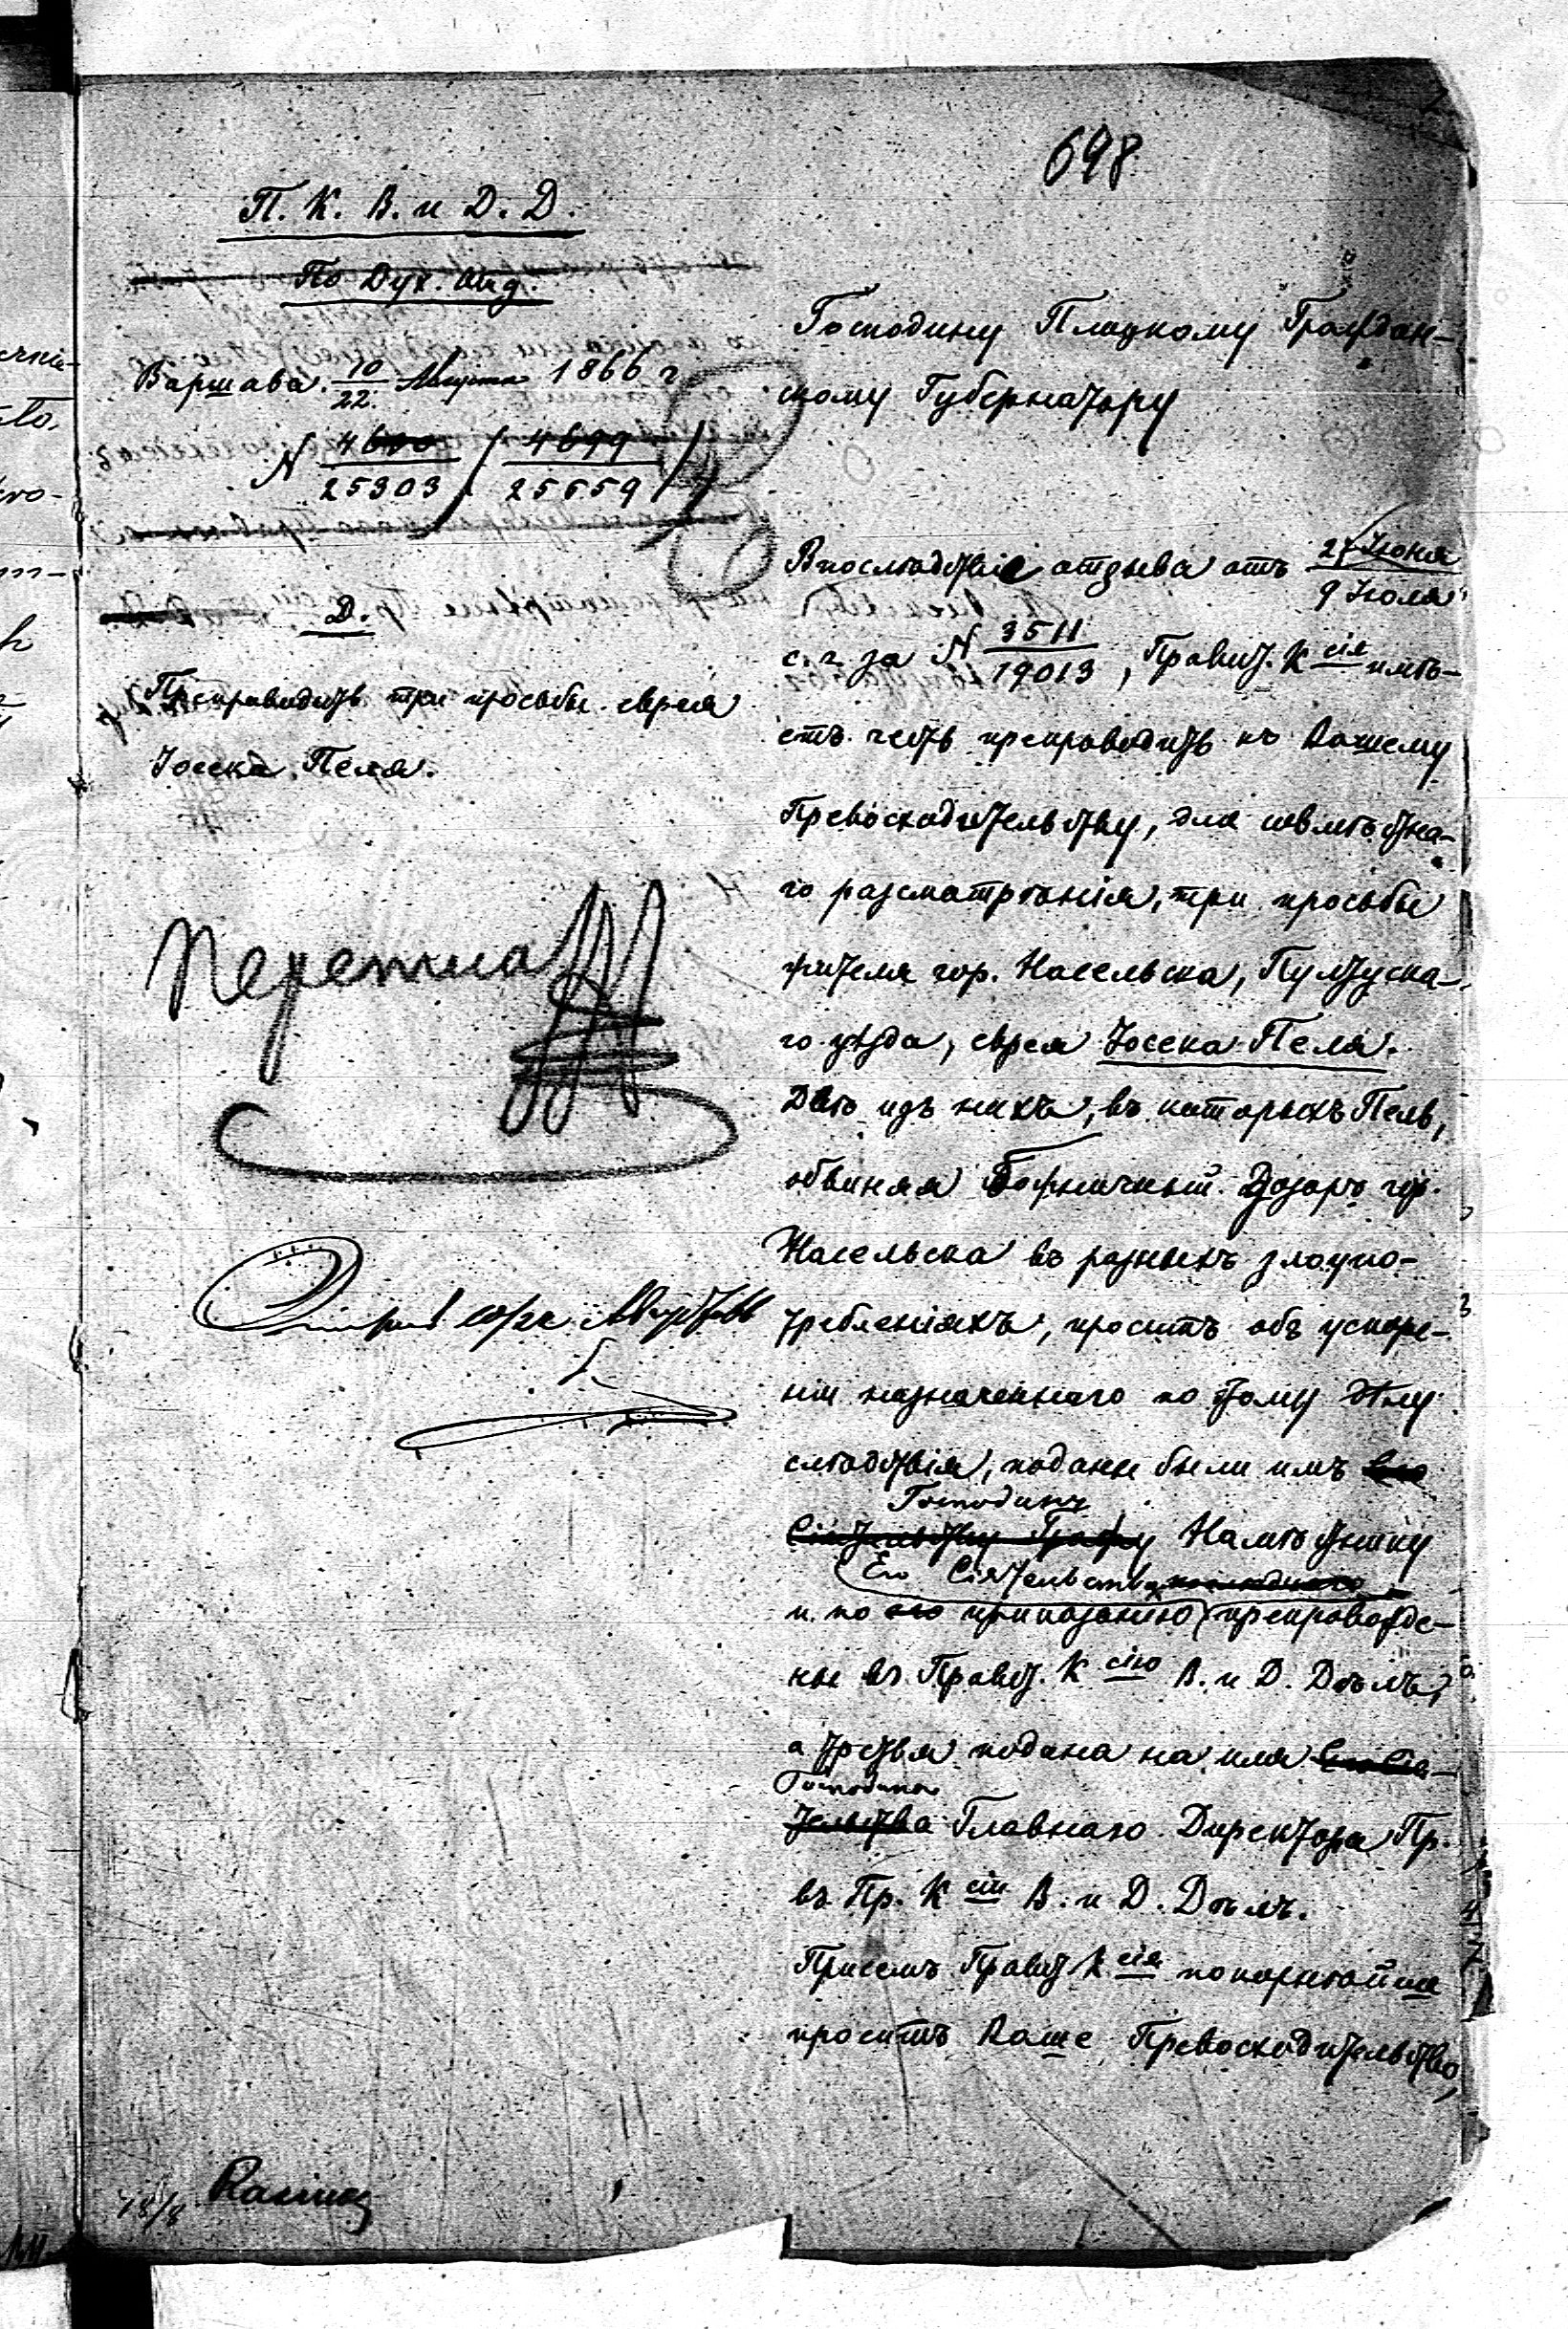 698
П. К. В. и Д. Д.
По Дух. Отд.
Варшава. 10/22. Августа 1866 г
N 4690/25303 / 4699/25659 /
Д.
Препроводить три просьбы еврея
Іосека Пеля.
10/22 Августа
18/8
Господину Плоцкому Граждан-
скому Губернатору
Впослѣдствіе отзыва отъ 27 Іюня/9 Іюля
с. г. за N 3511/19013, Правит. К сія имѣ-
етъ честь препроводить къ Вашему
Превосходительству, для совмѣстна-
го разсмотрѣнія, три просьбы
жителя гор. Насельска, Пултуска-
го уѣзда, еврея Іосека Пеля.
Двѣ изъ нихъ, въ которыхъ Пель,
обвиняя Божничный Дозоръ гор.
Насельска въ разныхъ злоупо-
требленіяхъ, проситъ объ ускоре-
ніи назначеннаго по тому дѣлу
слѣдствія, поданы были имъ Его
Господину
Сіятельству Графу Намѣстнику
Его Сіятельства послѣдняго
и по его приказанію препровожде-
ны въ Правит. К сію В. и Д. Дѣлъ,
а третья подана на имя Его Сія-
Господина
тельства Главнаго Директора Пр.
въ Пр. К сіи В. и Д. Дѣлъ.
Присемъ Правит К сія покорнѣйше
проситъ Ваше Превосходительство,